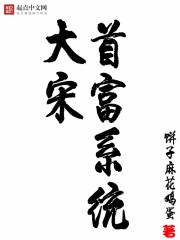 起点中文网
大宋
首富系统
饼子麻花鸡蛋 著